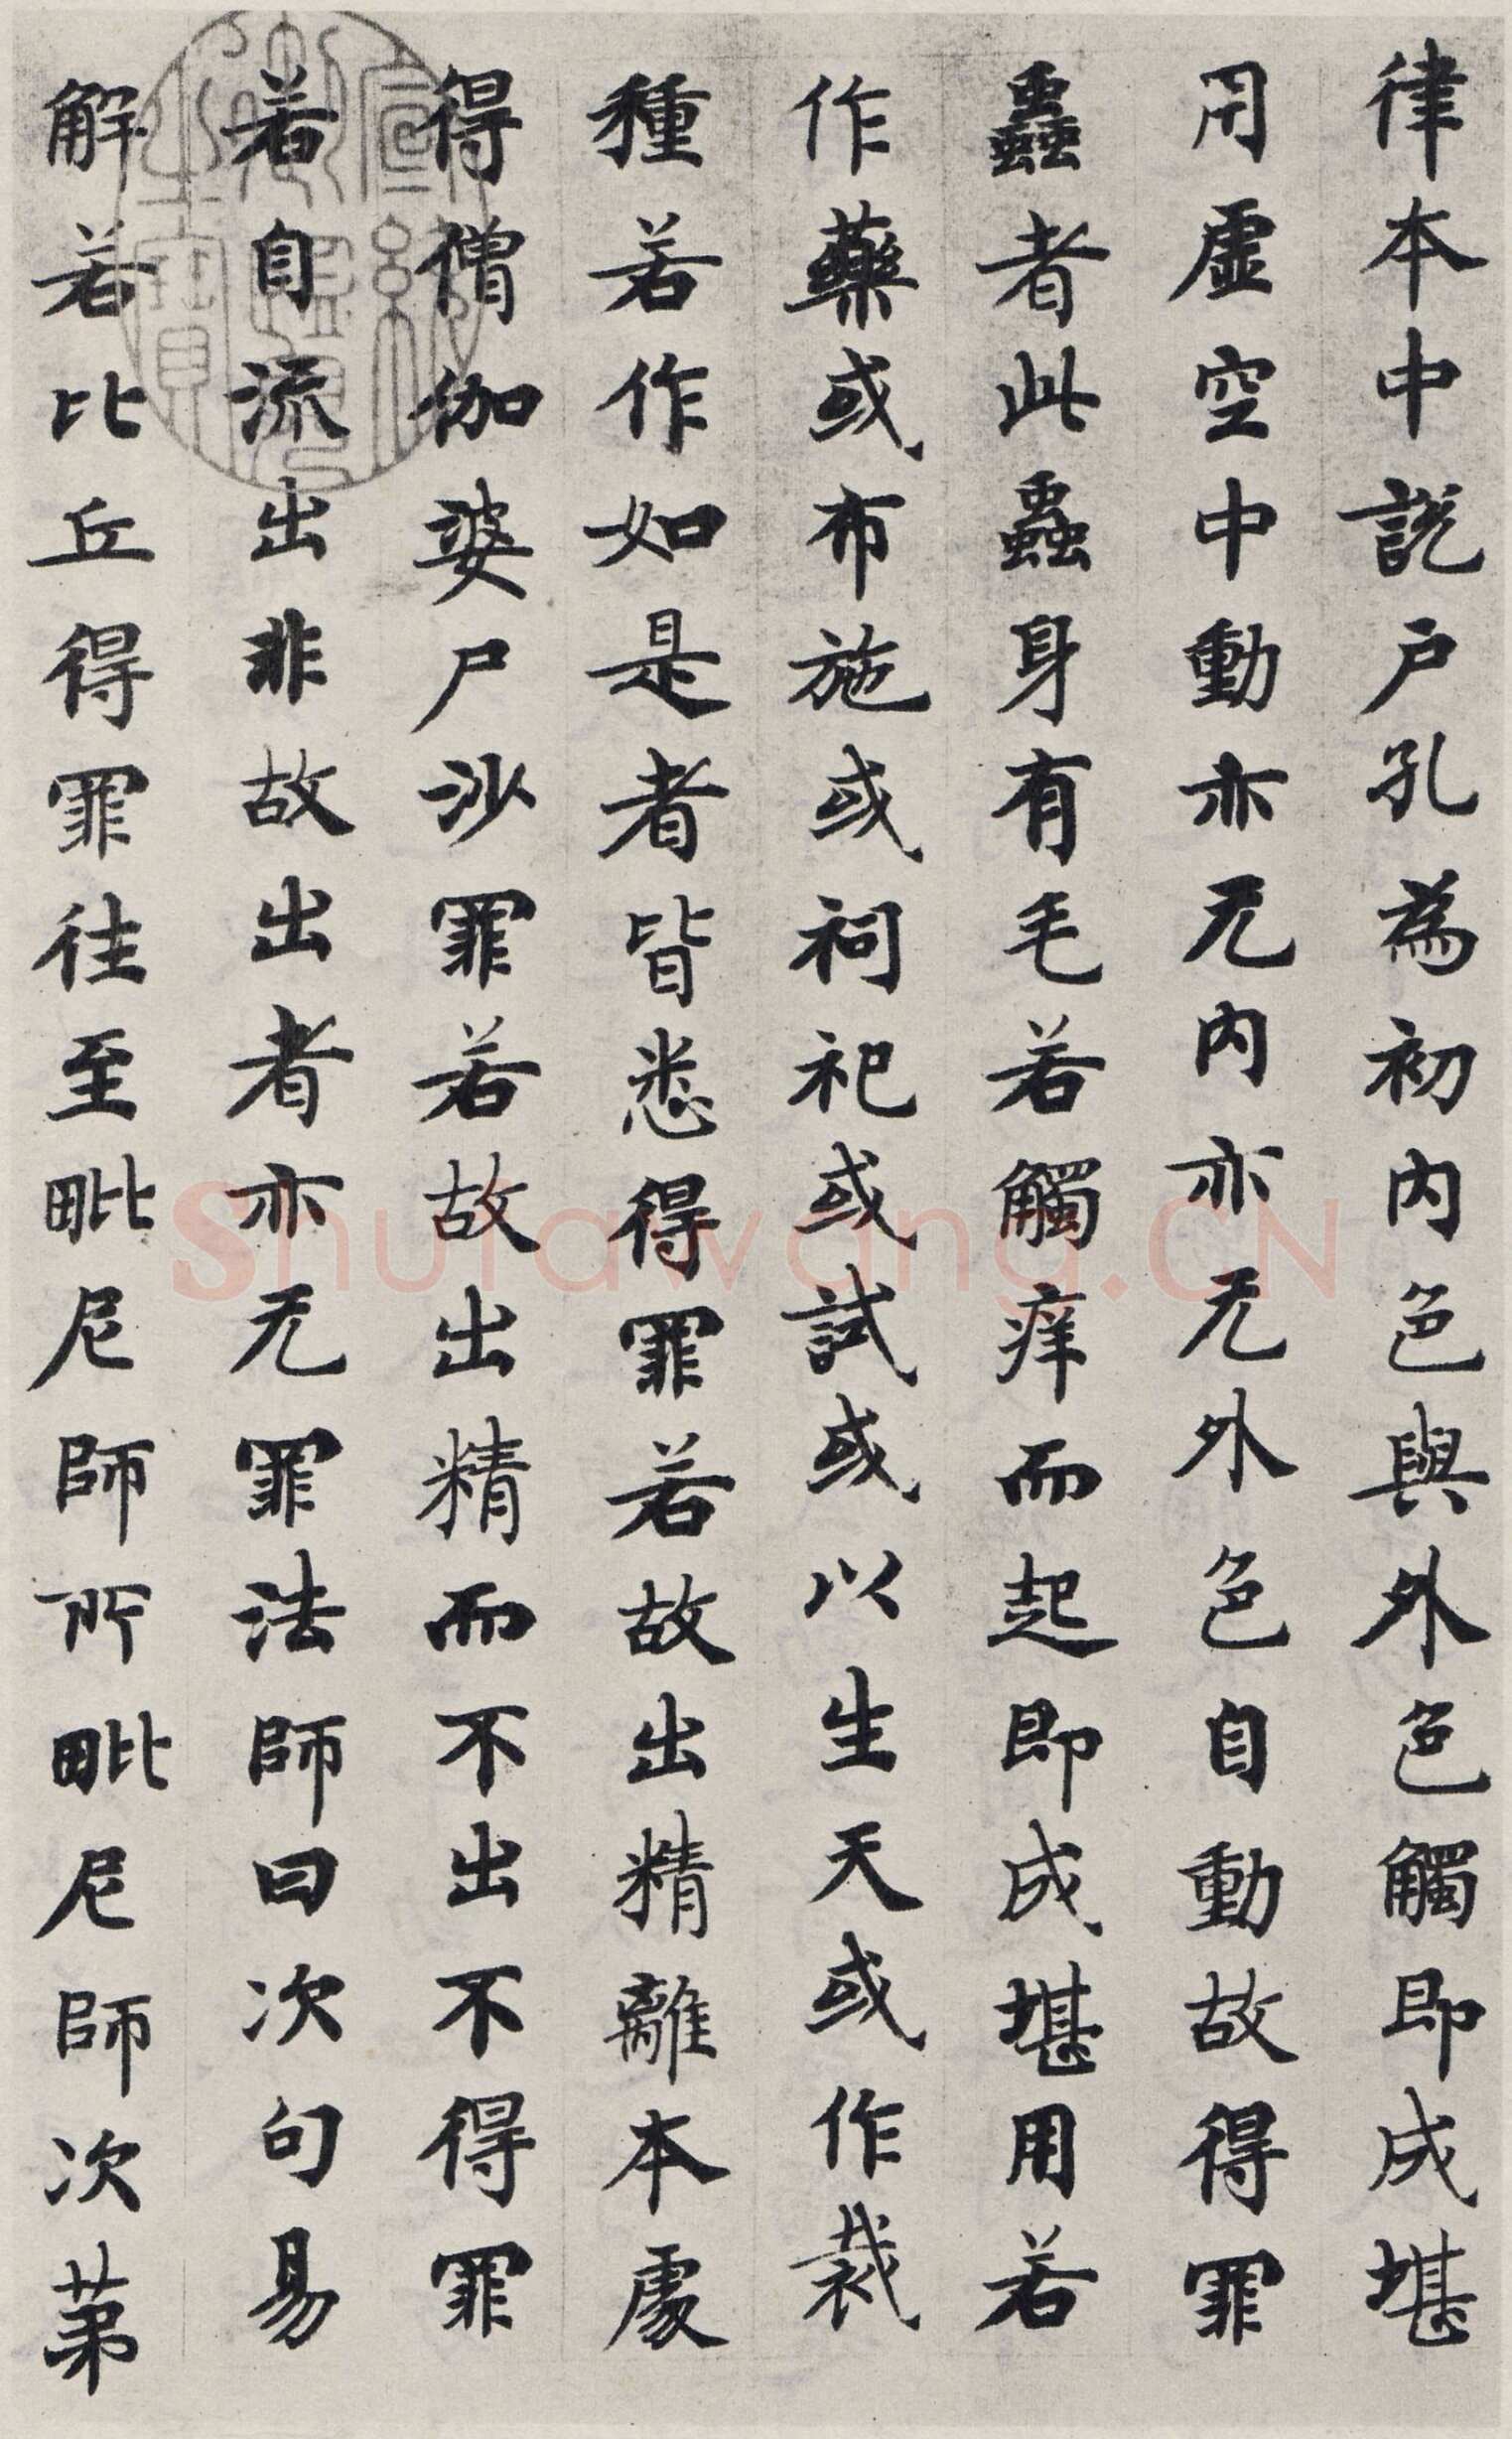 律本中説戸孔為初内色與外色觸即成堪
用虛空中動亦无内亦无外色自動故得罪
蟲者此蟲身有毛若觸痒而起即成堪用若
作藥或布施或祠祀或試或以生天或作裁
種若作如是者皆悉得罪若故出精離本處
得僧伽婆尸沙罪若故出精而不出不得罪
若自流出非故出者亦无罪法師曰次句易
解若比丘得罪往至毗尼師所毗尼師次苐
Shufawang.CN